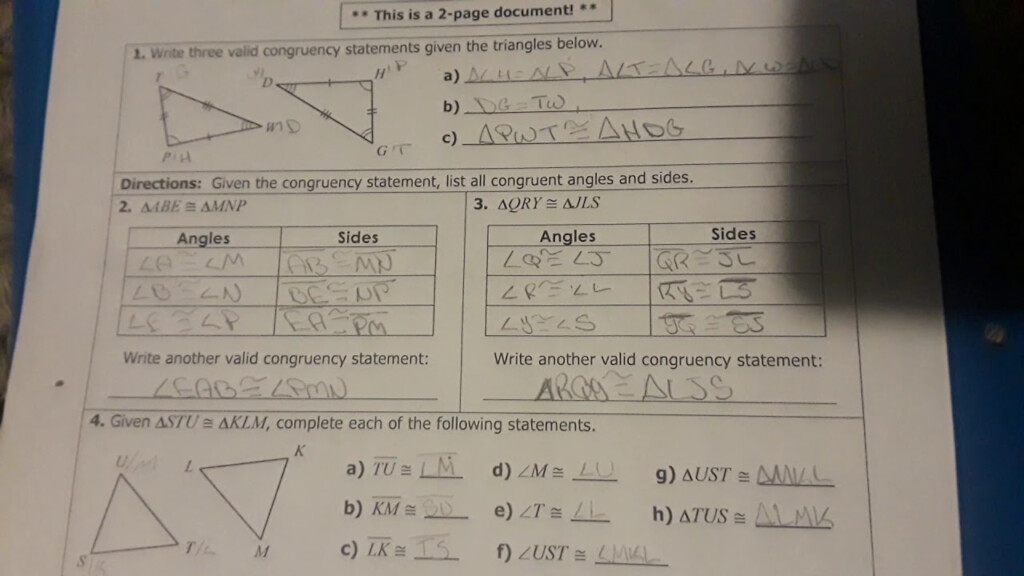 ** This is a 2-page document! **
1. Write three valid congruency statements given the triangles below.
a)
b) DG = TW,
c) ΔPWT ≅ ΔHDG
T/G
D
H/P
W/D
P/H
G/T
Directions: Given the congruency statement, list all congruent angles and sides.
2. ΔABE ≅ ΔMNP
Angles Sides
∠A ≅ ∠M AB ≅ MN
∠B ≅ ∠N BE ≅ NP
∠E ≅ ∠P EA ≅ PM
Write another valid congruency statement:
∠EAB ≅ ∠PMN
3. ΔQRY ≅ ΔJLS
Angles Sides
∠Q ≅ ∠J QR ≅ JL
∠R ≅ ∠L RY ≅ LS
∠Y ≅ ∠S YQ ≅ SJ
Write another valid congruency statement:
ΔRQY ≅ ΔLJS
4. Given ΔSTU ≅ ΔKLM, complete each of the following statements.
U
L
K
S
T/L
M
a) TU ≅ LM d) ∠M ≅ ∠U g) ΔUST ≅ ΔMKL
b) KM ≅ e) ∠T ≅ ∠L h) ΔTUS ≅ ΔLMK
c) LK ≅ TS f) ∠UST ≅ ∠MKL